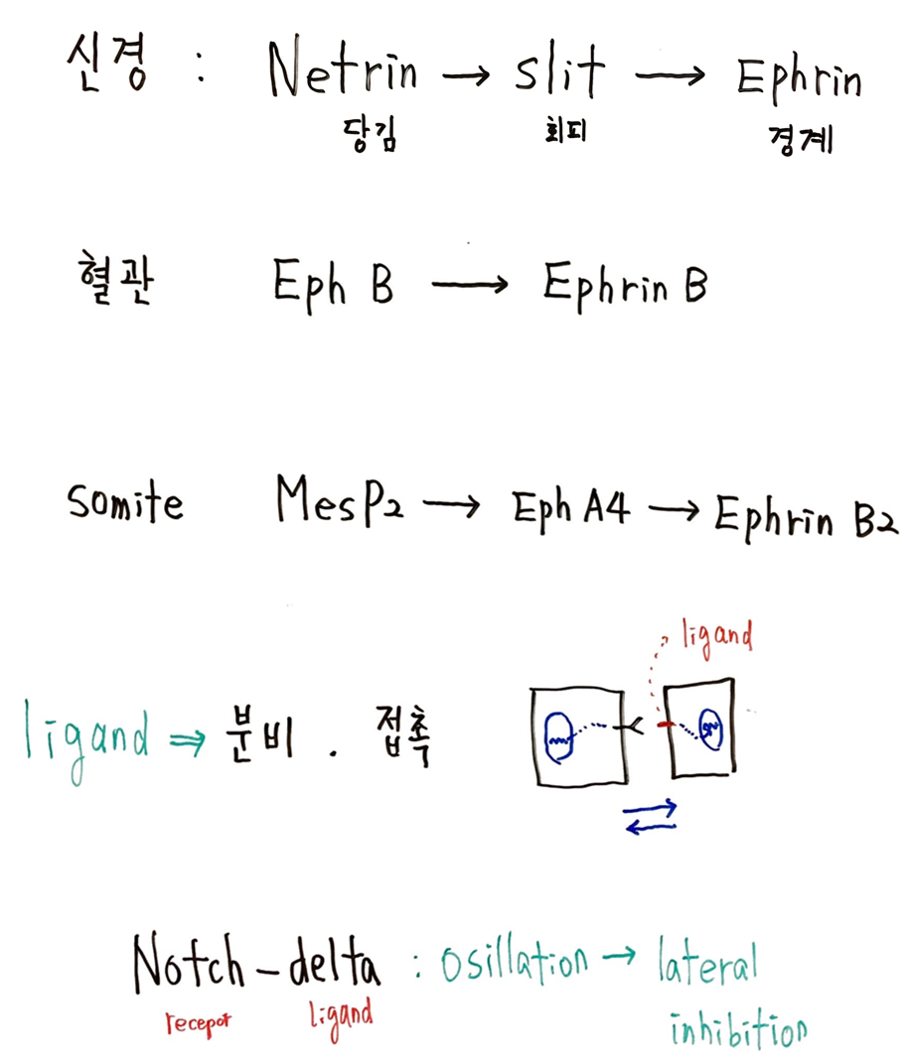 신경 : Netrin → slit → Ephrin
당김 회피 경계
혈관 Eph B → Ephrin B
somite MesP2 → Eph A4 → Ephrin B2
ligand
ligand ⇒ 분비 . 접촉
Notch - delta : osillation → lateral
recepor ligand inhibition